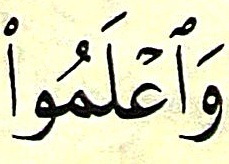 وَٱعۡلَمُوا۟